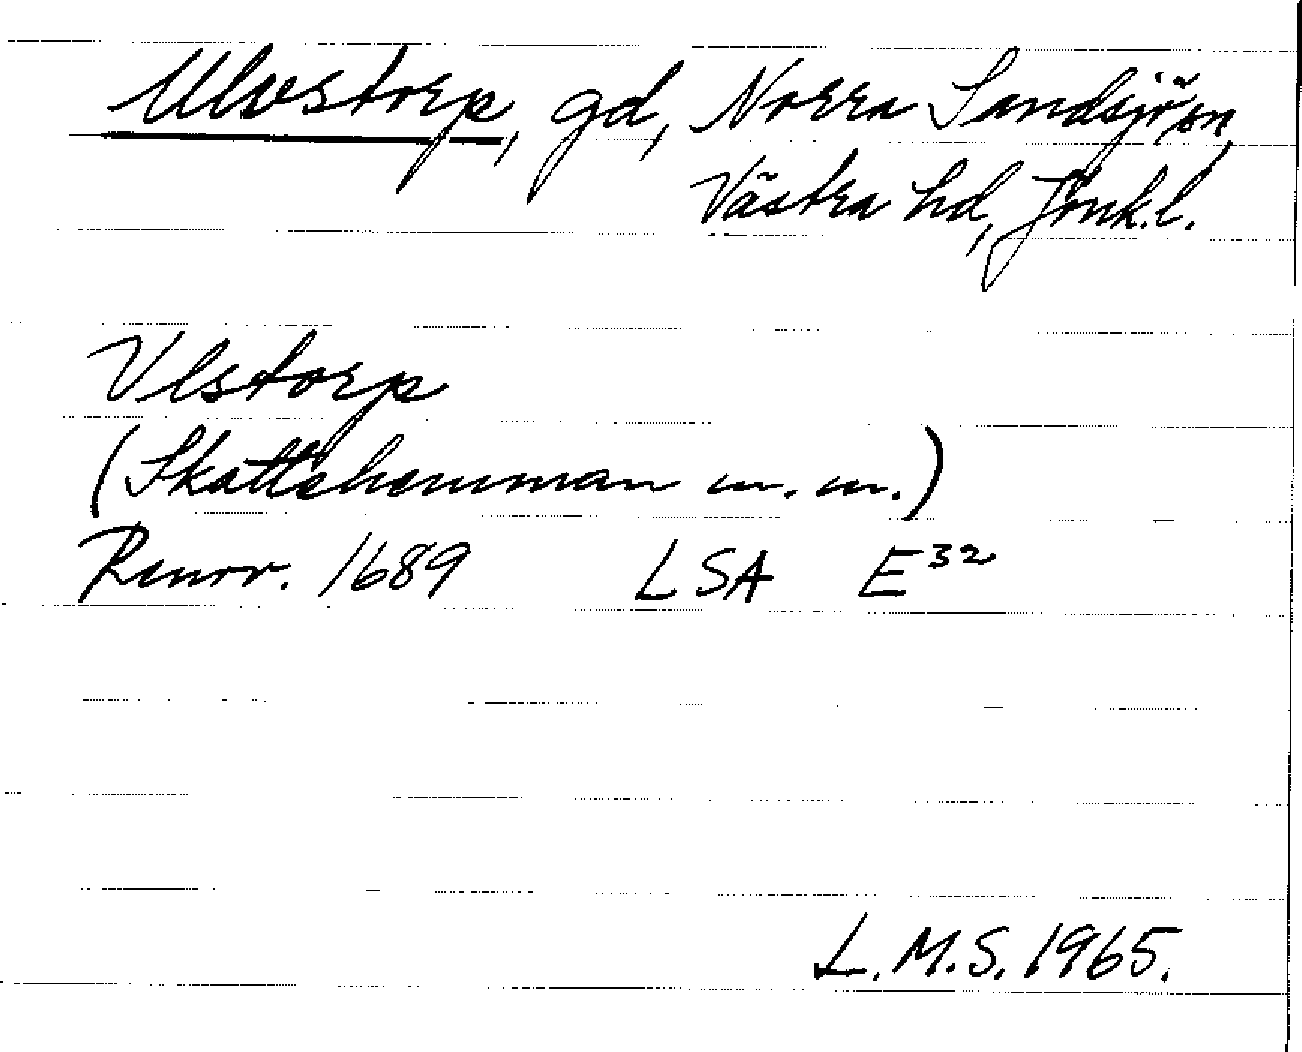 Ulvstorp, gd, Norra Sandsjö sn,
Västra hd, Jönk.l.
Vlstorp
(Skattehemman m.m.)
Renov. 1689 LSA E³²
L.M.S. 1965.